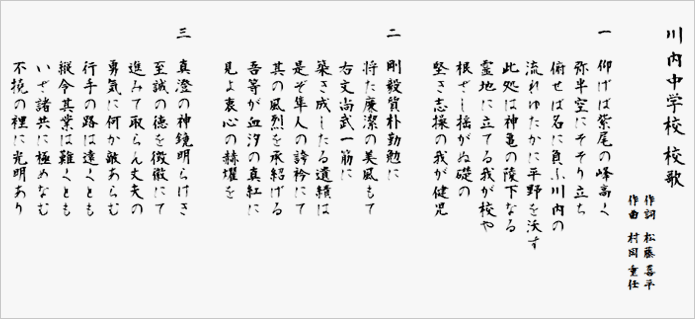 川内中学校 校歌
作詞 松藤喜平
作曲 村岡重任
一 仰げば紫尾の峰高く
弥半空にそそり立ち
俯せば名に負ふ川内の
流れゆたかに平野を沃す
此処は神亀の陵下なる
霊地に立てる我が校や
根ざし揺がぬ礎の
堅き志操の我が健児
二 剛毅質朴勤勉に
将た廉潔の美風もて
右文尚武一筋に
築き成したる遺績は
是ぞ隼人の誇衿にて
其の風烈を承紹げる
吾等が血汐の真紅に
見よ衷心の赫燿を
三 真澄の神鏡明らけき
至誠の徳を徴徽にて
進みて取らん丈夫の
勇気に何か敵あらむ
行手の路は遠くとも
縦令其業は難くとも
いざ諸共に極めなむ
不撓の裡に光明あり